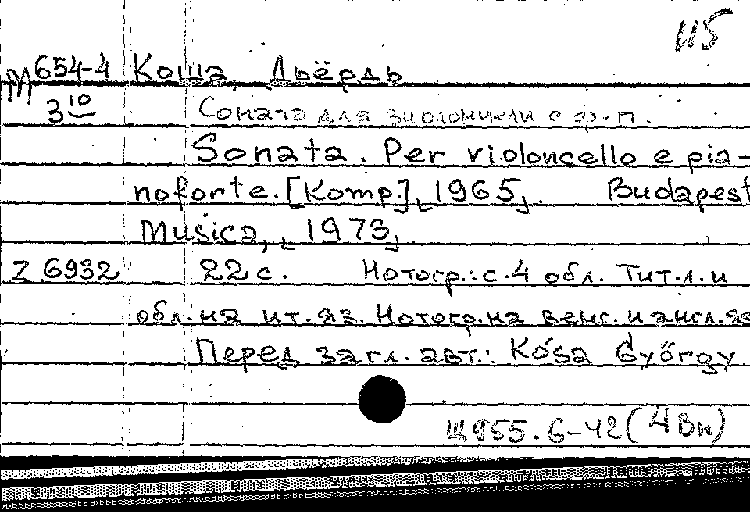 115
М 654-4 Коша, Дьёрдь
3 10 Соната для виолончели с ф-п.
Sonata. Per violoncello e pia-
noforte. [Komp.] 1965. Budapest
Musica, 1973.
Z 6932 22 с. Нотогр.: с. 4 обл. Тит. л. и
обл. на ит. яз. Нотогр. на венг. и англ. яз
Перед загл. авт.: Kósa György
Щ955.6-42 (4Вн)